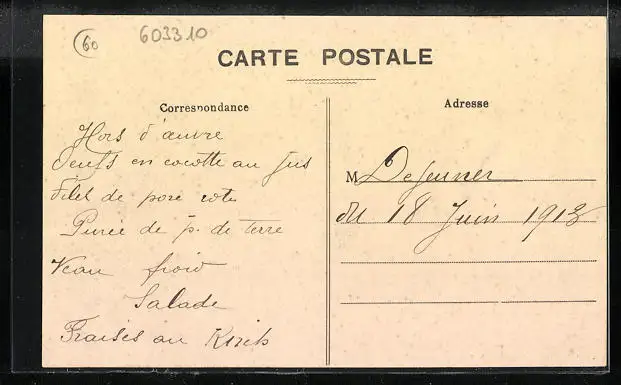 60
603310
CARTE POSTALE
Correspondance
Hors d'œuvre
Oeufs en cocotte au Jus
Filet de porc
Purée de p. de terre
Veau froid
Salade
Fraises au Kirsh
Adresse
M Dejeuner
du 18 Juin 1913